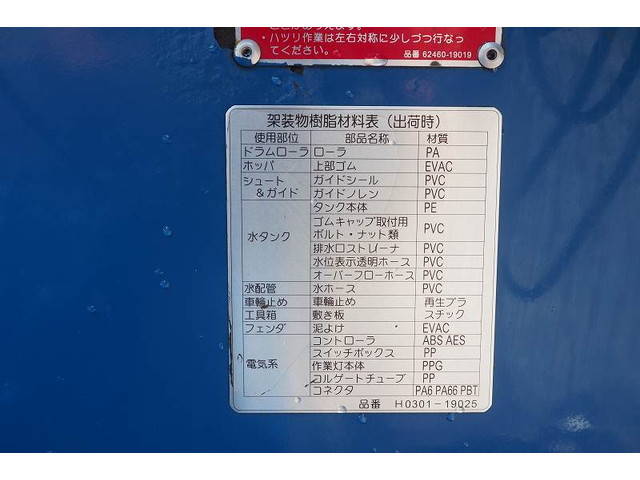 ・ハツリ作業は左右対称に少しづつ行なっ
てください。
品番 62460-19019
架装物樹脂材料表（出荷時）
使用部位 部品名称 材質
ドラムローラ ローラ PA
ホッパ 上部ゴム EVAC
シュート ガイドシール PVC
＆ガイド ガイドノレン PVC
タンク本体 PE
水タンク ゴムキャップ取付用 PVC
ボルト・ナット類
排水口ストレーナ PVC
水位表示透明ホース PVC
オーバーフローホース PVC
水配管 水ホース PVC
車輪止め 車輪止め 再生プラ
工具箱 敷き板 スチック
フェンダ 泥よけ EVAC
コントローラ ABS AES
スイッチボックス PP
電気系 作業灯本体 PPG
コルゲートチューブ PP
コネクタ PA6 PA66 PBT
品番 H0301－19025